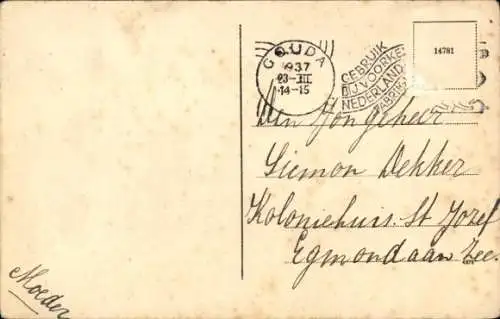 GOUDA
1937
23-III
14-15
GEBRUIK
BIJ VOORKEUR
NEDERLANDSCH
FABRIKAAT
14781
Den Jongeheer
Siemon Dekker
Koloniehuis. St Jozef
Egmond aan Zee.
Moeder